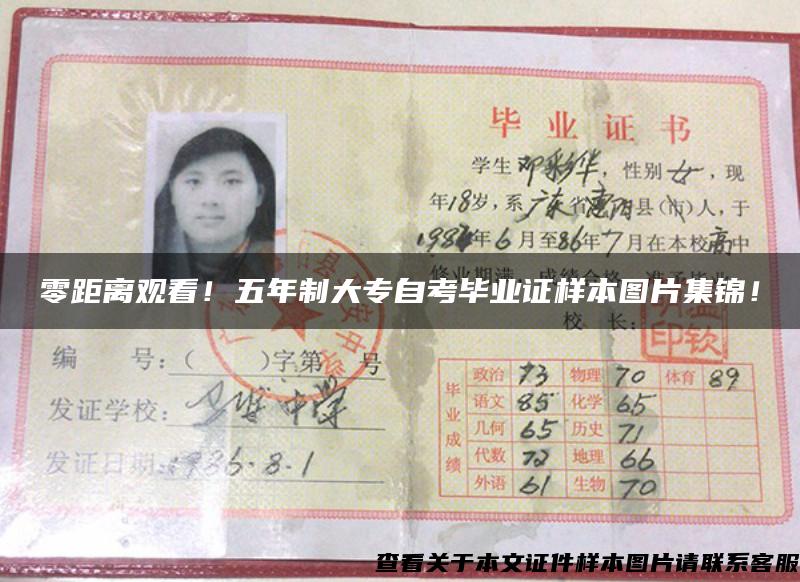 毕业证书
学生邓彩华，性别女，现
年18岁，系广东省惠阳县(市)人，于
1984年6月至86年7月在本校高中
零距离观看！五年制大专自考毕业证样本图片集锦！
校 长：
编 号：（ ）字第 号
发证学校：
中学
发证日期：1986.8.1
毕业成绩
政治 73 物理 70 体育 89
语文 85 化学 65
几何 65 历史 71
代数 72 地理 66
外语 61 生物 70
查看关于本文证件样本图片请联系客服